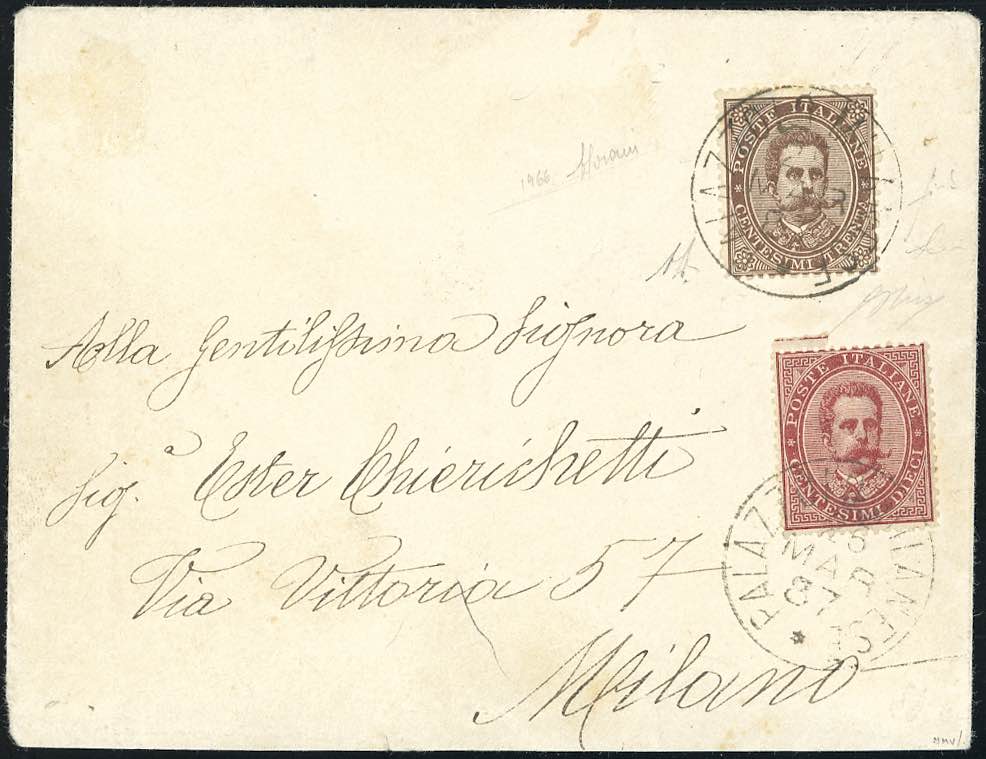 POSTE ITALIANE
CENTESIMI TRENTA
1966
Alla Gentilissima Signora
Sig.a Ester Chierichetti
Via Vittoria 57
Milano
POSTE ITALIANE
CENTESIMI DIECI
MAR
87